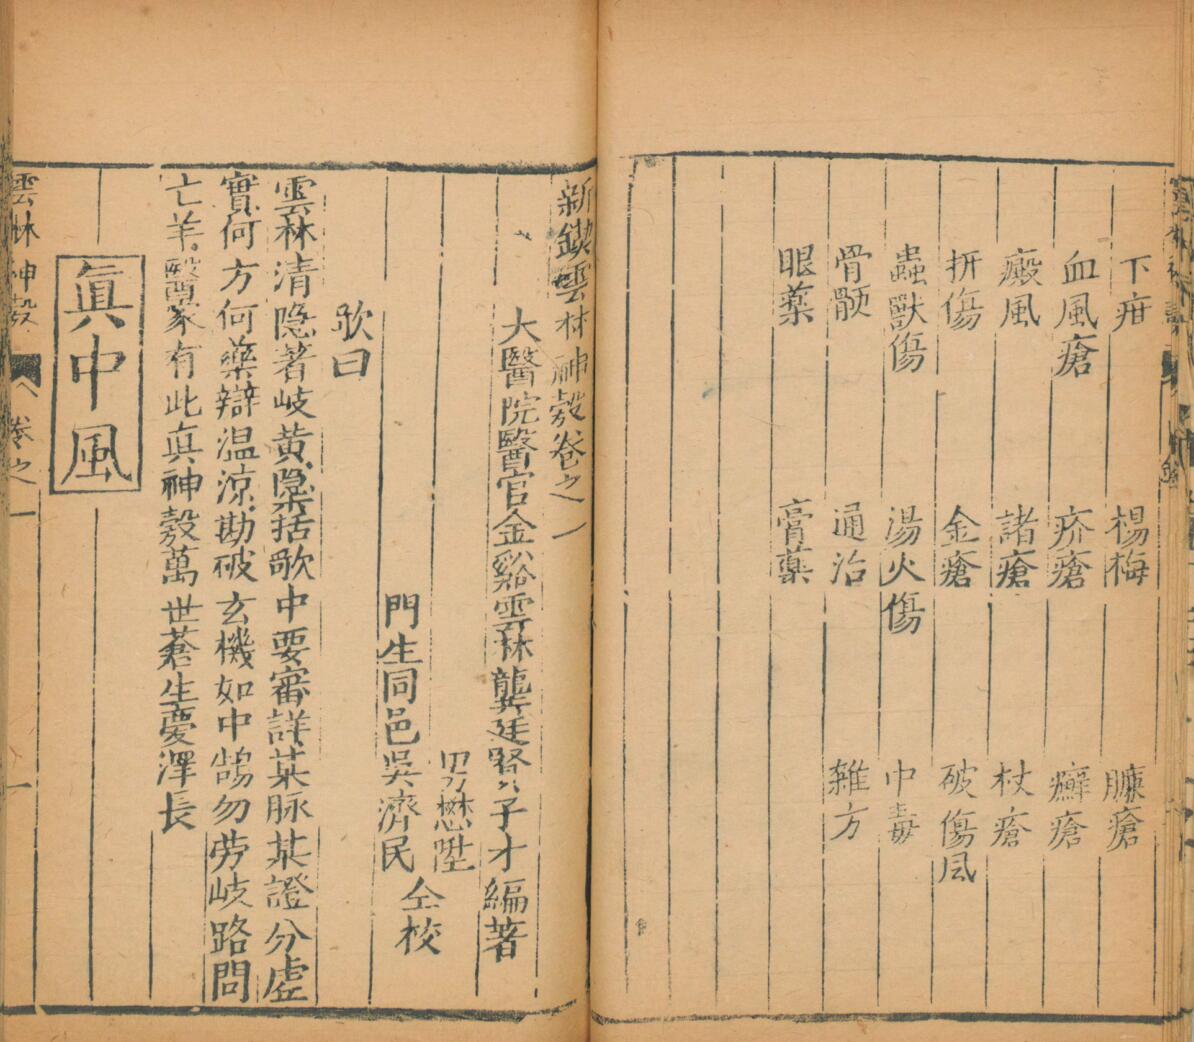 下疳 楊梅 臁瘡
血風瘡 疥瘡 癬瘡
癜風 諸瘡 杖瘡
折傷 金瘡 破傷風
蟲獸傷 湯火傷 中毒
骨骾 通治 雜方
眼藥 膏藥
新鍥雲林神彀卷之一
大醫院醫官金谿雲林龔廷賢子才編著
男懋陞
門生同邑吳濟民
仝校
歌曰
雲林清隐著岐黄隐括歌中要審詳某脉某證分虗
實何方何藥辯温凉勘破玄機如中鵠勿劳岐路問
亡羊醫家有此真神彀萬世蒼生慶澤長
真中風
雲林神彀
卷之一
一